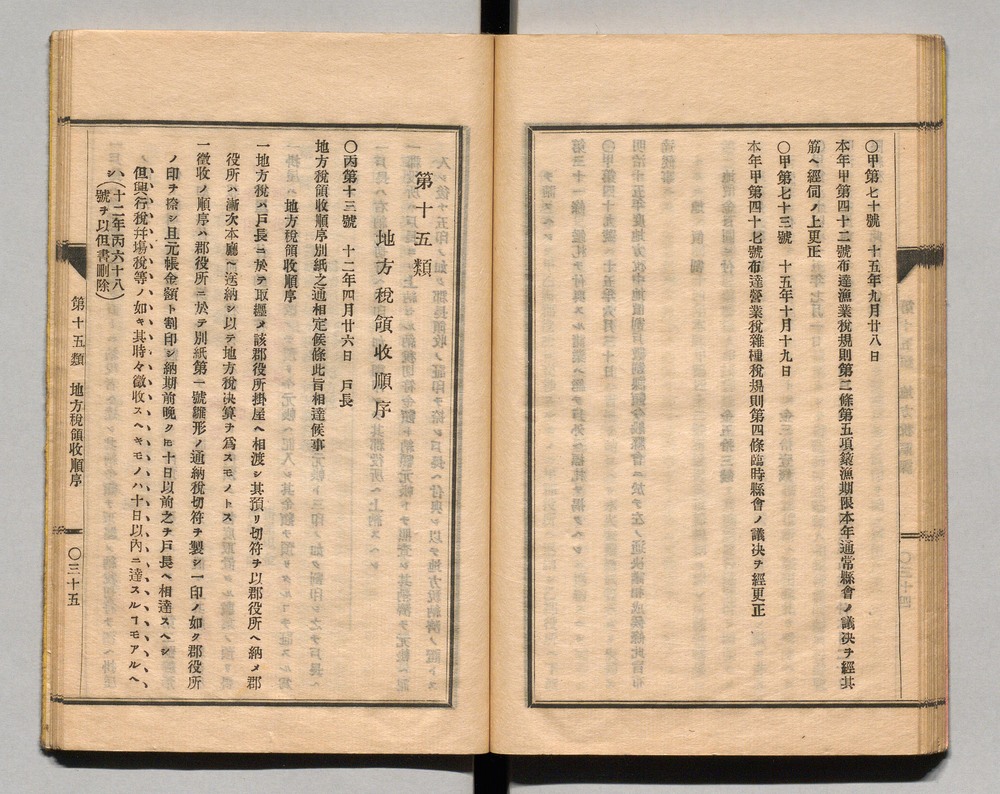 〇甲第七十號　十五年九月廿八日
本年甲第四十二號布達漁業稅規則第二條第五項築漁期限本年通常縣會ノ議決ヲ經其
筋ヘ經伺ノ上更正
〇甲第七十三號　十五年十月十九日
本年甲第四十七號布達營業稅雜種稅規則第四條臨時縣會ノ議決ヲ經更正
第十五類
地方稅領收順序
〇丙第十三號　十二年四月廿六日　戶長
地方稅領收順序別紙之通相定候條此旨相達候事
地方稅領收順序
一地方稅ハ戶長ニ於テ取纒メ該郡役所掛屋ヘ相渡シ其預リ切符ヲ以郡役所ヘ納メ郡
役所ハ漸次本廳ヘ送納シ以テ地方稅決算ヲ爲スモノトス
一徵收ノ順序ハ郡役所ニ於テ別紙第一號雛形ノ通納稅切符ヲ製シ一印ノ如ク郡役所
ノ印ヲ捺シ且元帳金額ト割印シ納期前晚クモ十日以前之ヲ戶長ヘ相達スヘシ
但興行稅幷場稅等ノ如キ其時々徵收スヘキモノハ十日以內ニ達スルヿモアルヘ
シ（十二年丙六十八
號ヲ以但書刪除）
第十五類　地方稅領收順序
〇三十五